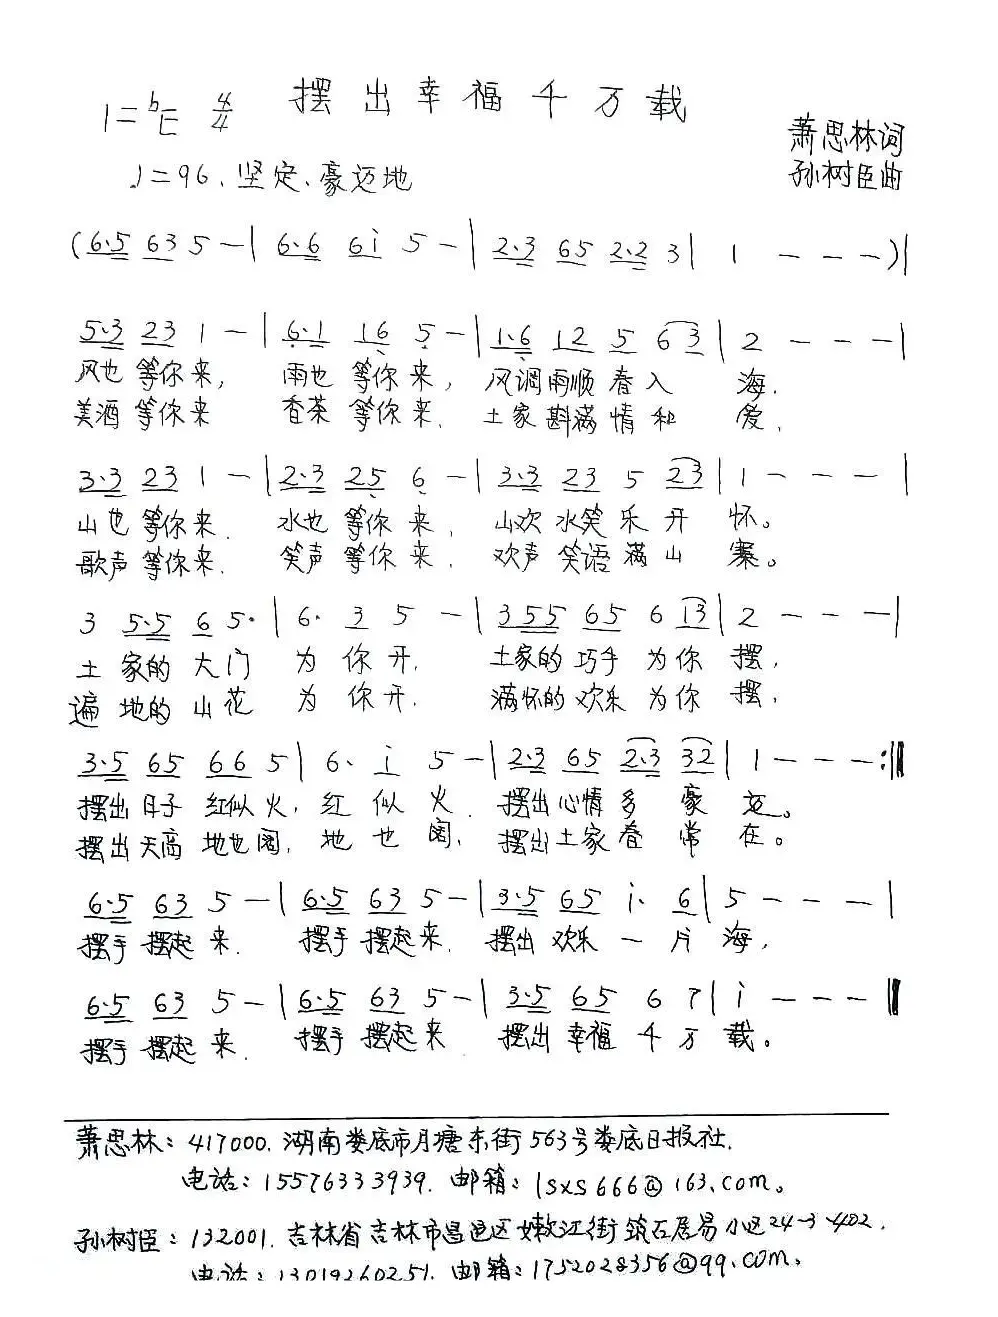 摆出幸福千万载
1=ᵇE 4/4
萧思林词
♩=96、坚定、豪迈地
孙树臣曲
(6·5 63 5 — | 6·6 6i 5 — | 2·3 65 2·2 3 | 1 — — —)|
5·3 23 1 — | 6·1 16 5 — | 1·6 12 5 63 | 2 — — — |
风也等你来, 雨也等你来, 风调雨顺春入海.
美酒等你来 香茶等你来. 土家斟满情和爱.
3·3 23 1 — | 2·3 25 6 — | 3·3 23 5 23 | 1 — — — |
山也等你来. 水也等你来, 山欢水笑乐开怀。
歌声等你来. 笑声等你来. 欢声笑语满山寨。
3 5·5 6 5· | 6· 3 5 — | 3 55 65 6 i3 | 2 — — — |
土家的大门为你开. 土家的巧手为你摆,
遍地的山花为你开. 满怀的欢乐为你摆,
3·5 65 66 5 | 6· i 5 — | 2·3 65 2·3 32 | 1 — — — :||
摆出日子红似火, 红似火. 摆出心情多豪迈。
摆出天高地也阔, 地也阔, 摆出土家春常在。
6·5 63 5 — | 6·5 63 5 — | 3·5 65 i· 6 | 5 — — — |
摆手摆起来. 摆手摆起来. 摆出欢乐一片海,
6·5 63 5 — | 6·5 63 5 — | 3·5 65 6 7 | i — — — ||
摆手摆起来. 摆手摆起来 摆出幸福千万载。
萧思林: 417000. 湖南娄底市月塘东街563号娄底日报社.
电话: 15576333939. 邮箱: lsxs666@163.com。
孙树臣: 132001. 吉林省吉林市昌邑区嫩江街筑石居易小区24-3-402.
电话: 13019260251. 邮箱: 1752028356@qq.com。